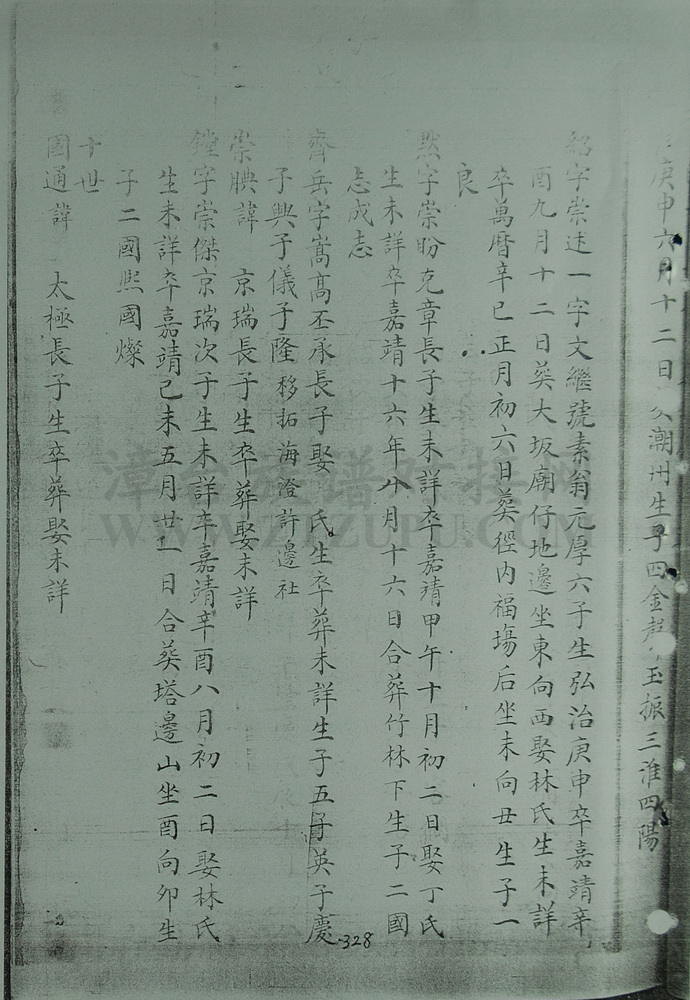 庚申六月十二日 潮州生子四金 玉振三淮四陽
字崇述一字文繼號素翁元厚六子生弘治庚申卒嘉靖辛
酉九月十二日葵大坂廟仔地邊坐東向西娶林氏生未詳
卒萬曆辛巳正月初六日葵徑内福塲后坐未向丑生子一
良
字崇盼克章長子生未詳卒嘉靖甲午十月初二日娶丁氏
生未詳卒嘉靖十六年 月十六日合葬竹林下生子二國
志成志
齊岳字嵩高丕承長子娶 氏生卒葬未詳生子五子英子慶
子興子儀子隆移拓海澄許邊社
崇腆諱 京瑞長子生卒葬娶未詳
鏜字崇傑京瑞次子生未詳卒嘉靖辛酉八月初二日娶林氏
生未詳卒嘉靖己未五月 日合葵塔邊山坐酉向卯生
子二國熙國燦
十世
國通諱 太極長子生卒葬娶未詳
328
WWW.ZTZUPU.COM